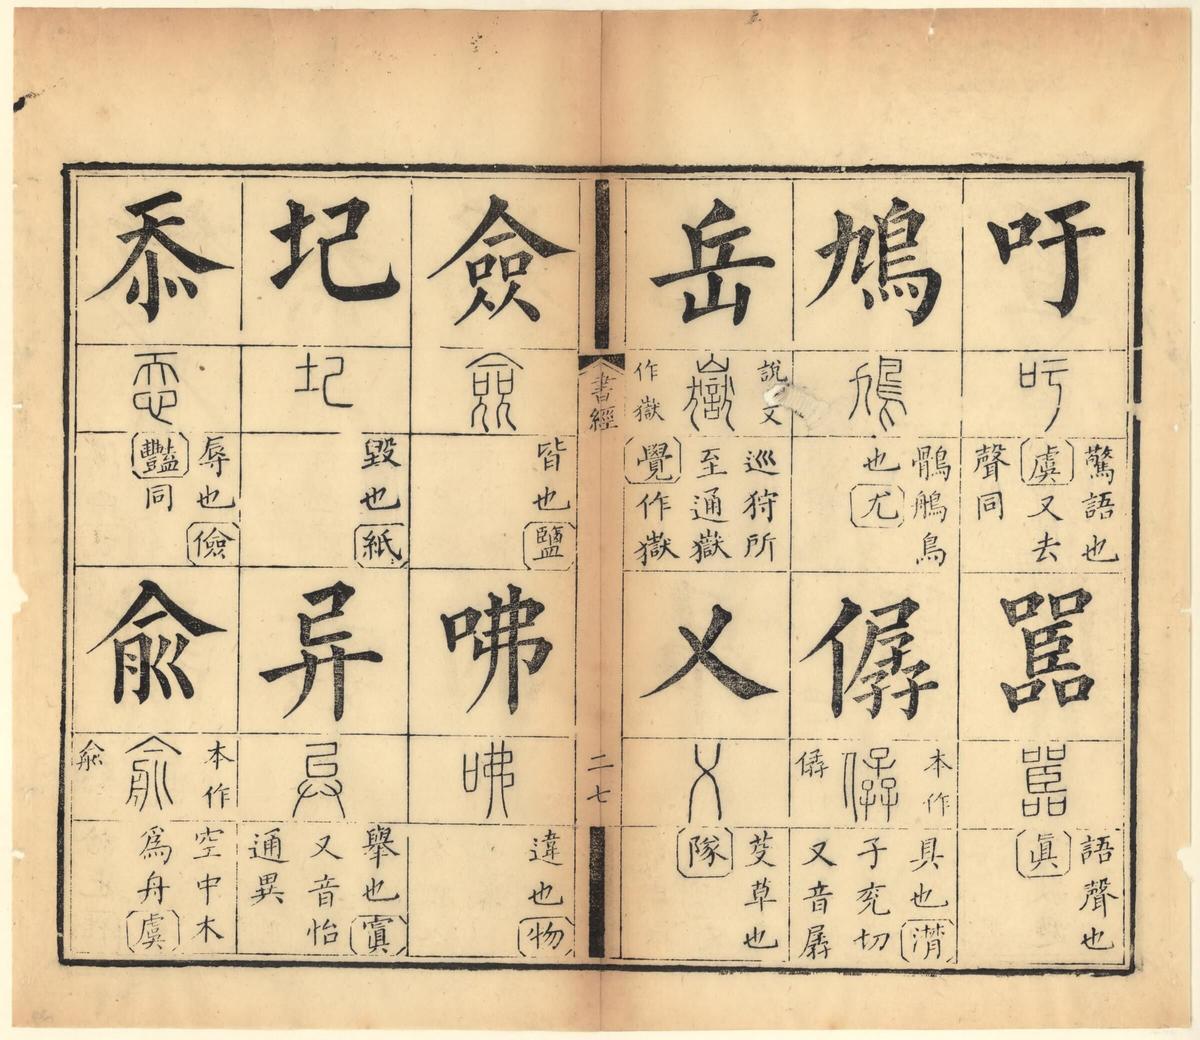 吁
吁
驚語也
虞又去
聲同
嚚
嚚
語聲也
眞
鳩
鳩
鶻鵃鳥
也尤
僝
本作
僝
僝
具也潸
子兖切
又音孱
岳
說文
嶽
作嶽
巡狩所
至通嶽
覺作嶽
乂
乂
芟草也
隊
書經
二七
僉
僉
皆也鹽
咈
咈
違也物
圮
圮
毀也紙
异
异
舉也寘
又音怡
通異
忝
忝
辱也儉
豔同
兪
本作
俞
俞
空中木
爲舟虞